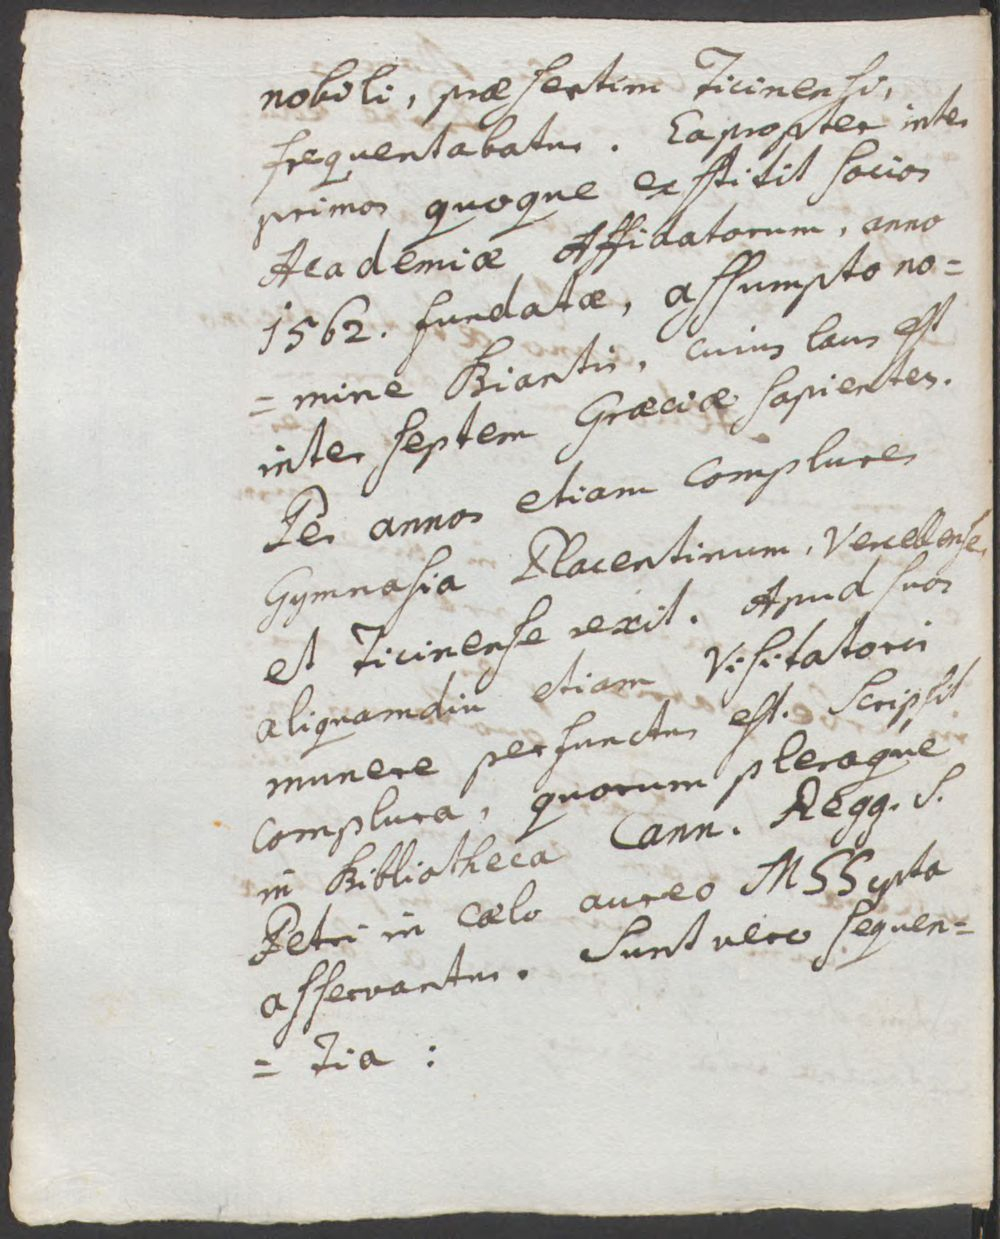 nobili, præsertim Ticinensi,
frequentabatur. Eapropter inter
primos quoque exstitit socios
Academiæ Affidatorum, anno
1562. fundatæ, assumpto no=
= mine Biantis, cuius laus est
inter septem Græciæ sapientes.
Per annos etiam complures
Gymnasia Placentinum, Vercellense,
et Ticinense rexit. Apud suos
aliquamdiu etiam Visitatoris
munere perfunctus est. Scripsit
complura, quorum pleraque
in Bibliotheca Cann. Regg. S.
Petri in cælo aureo MSSypta
asservantur. Sunt vero sequen=
= tia :